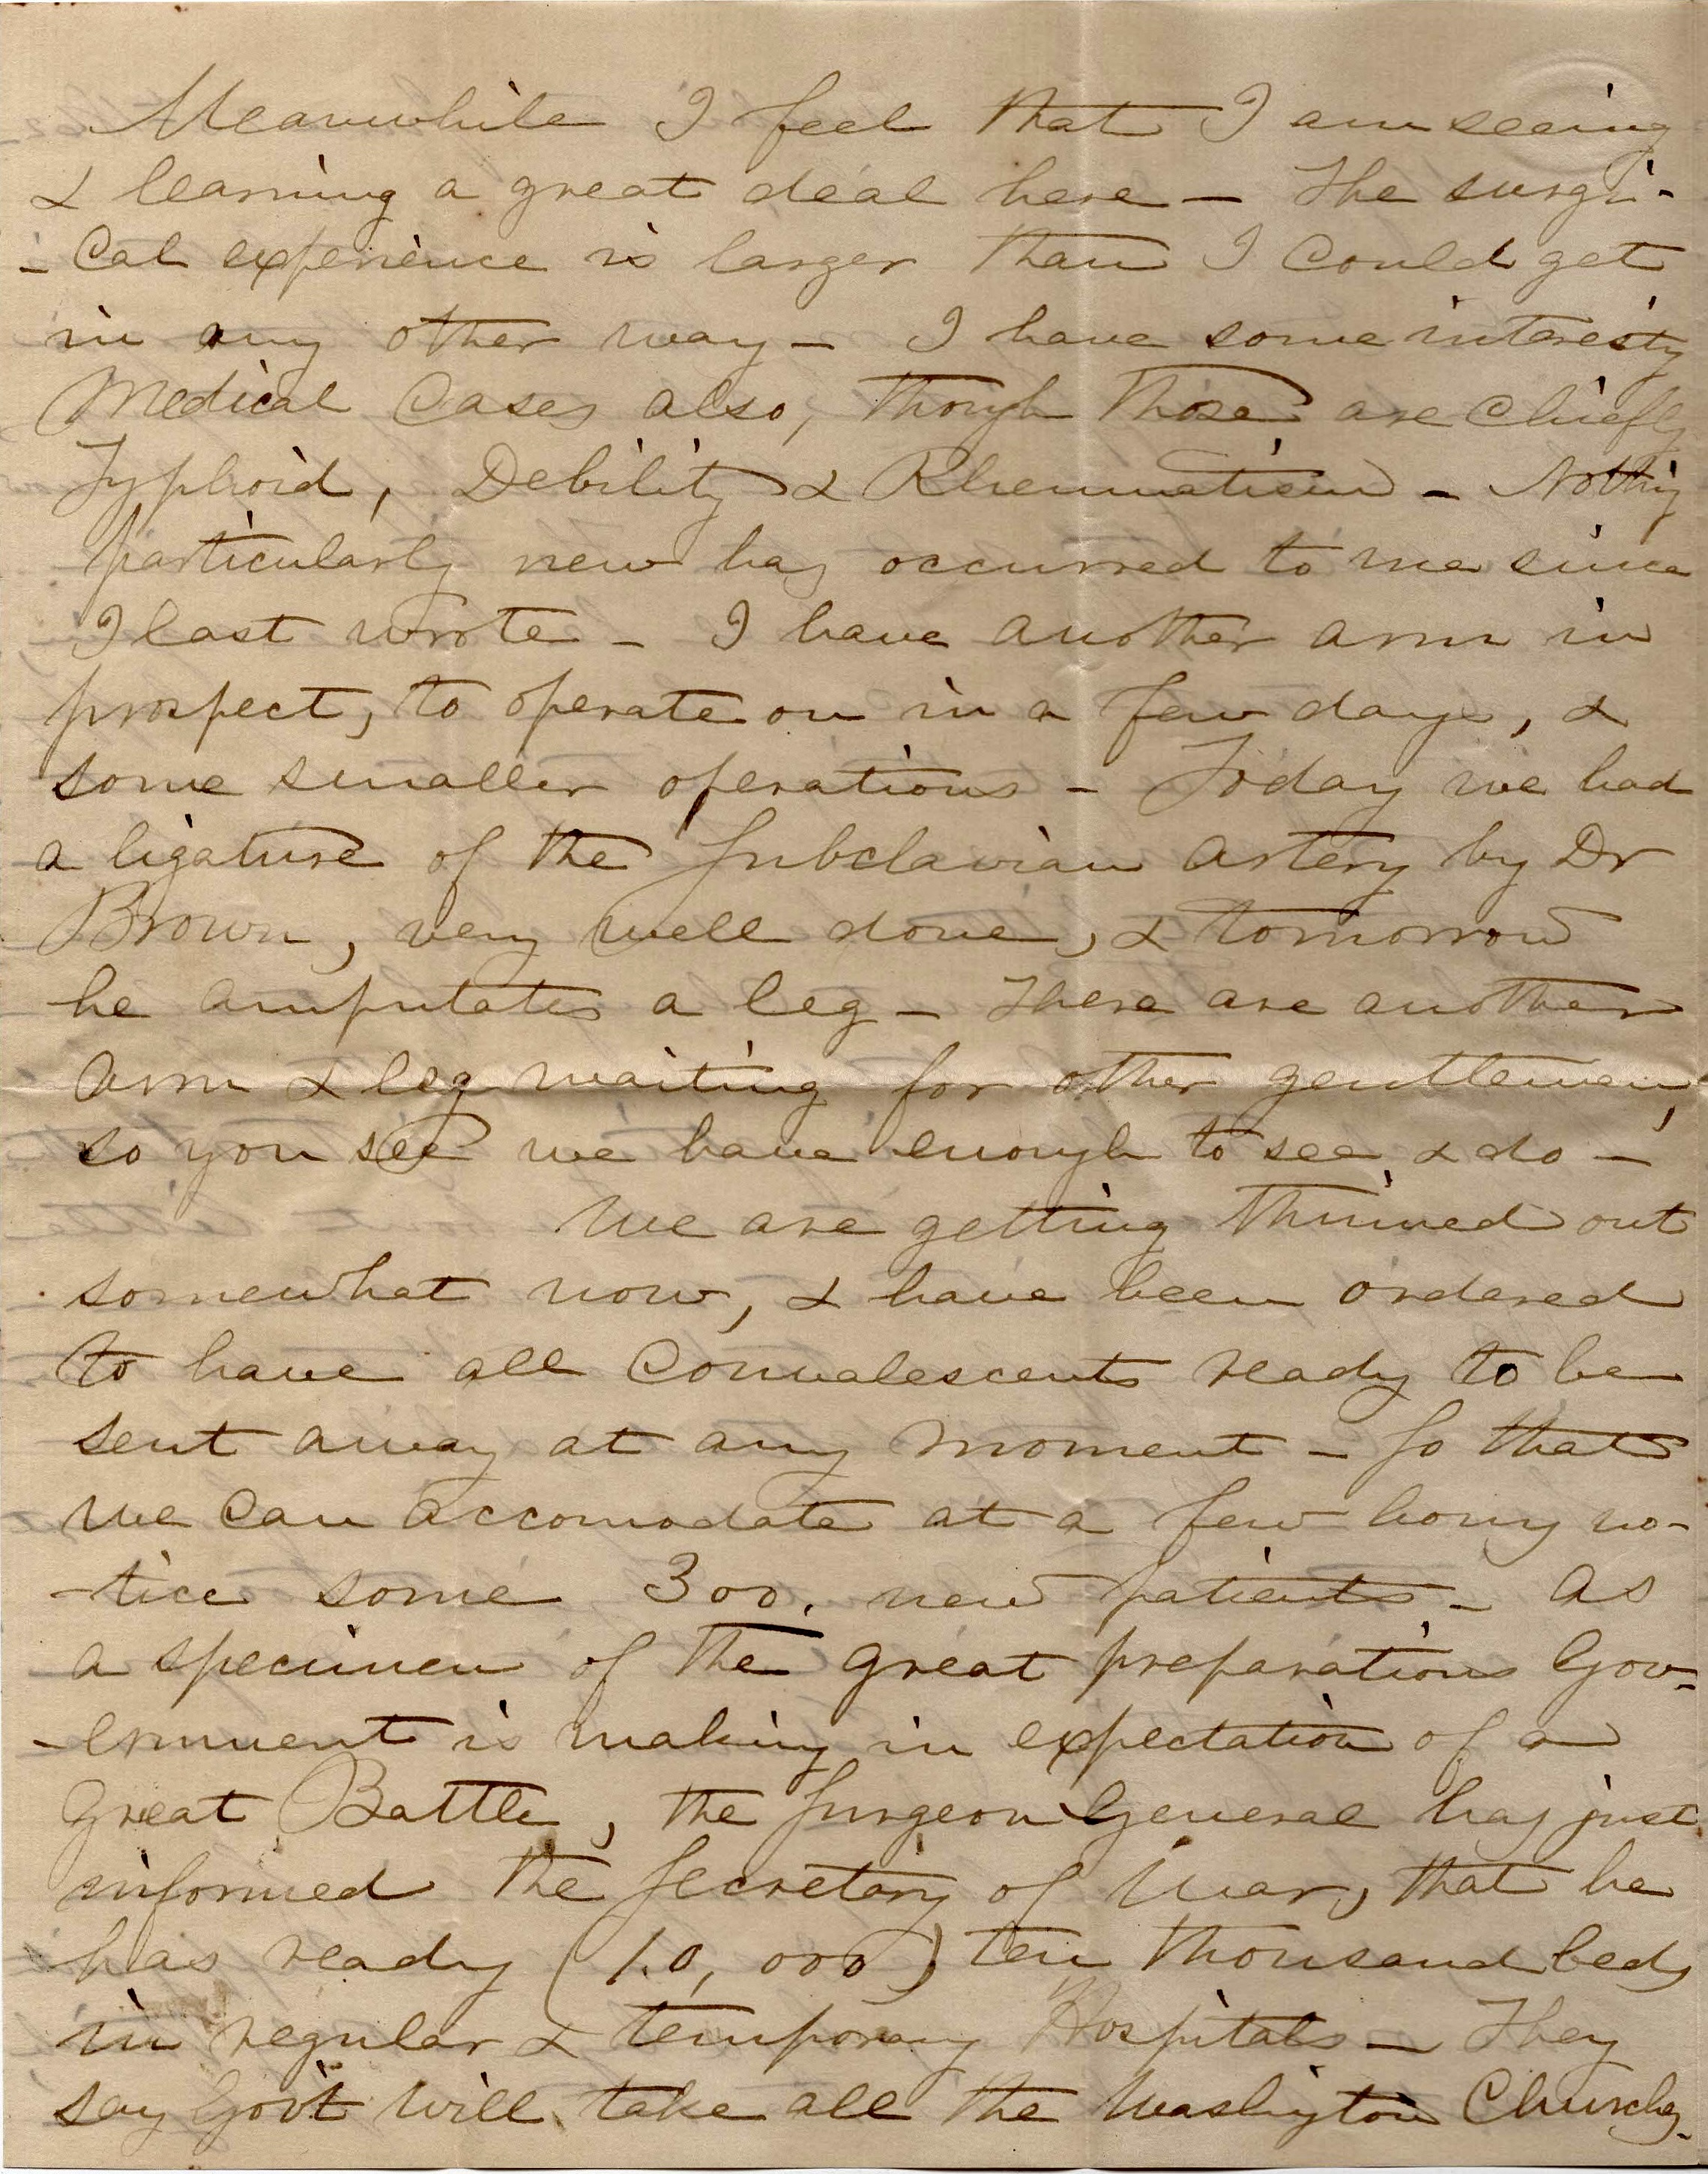 Meanwhile I feel that I am seeing
& learning a great deal here — The surgi-
- cal experience is larger than I could get
in any other way — I have some interestg
Medical Cases also, though those are chiefly
Typhoid, Debility & Rheumatism — Nothig
particularly new has occurred to me since
I last wrote — I have another arm in
prospect, to operate on in a few days, &
some smaller operations — Today we had
a ligature of the Subclavian artery by Dr
Brown, very well done, & tomorrow
he amputates a leg — There are another
arm & leg waiting for other gentlemen,
so you see we have enough to see & do —
We are getting thinned out
somewhat now, & have been ordered
to have all Convalescents ready to be
sent away at any moment — So that
we can accomodate at a few hours no-
- tice some 300. new patients — As
a specimen of the great preparations Gov-
- ernment is making in expectation of a
Great Battle, the Surgeon General has just
informed the Secretary of War, that he
has ready (10,000) ten thousand beds
in regular & temporary Hospitals — They
say Gov't will take all the Washington Churches.